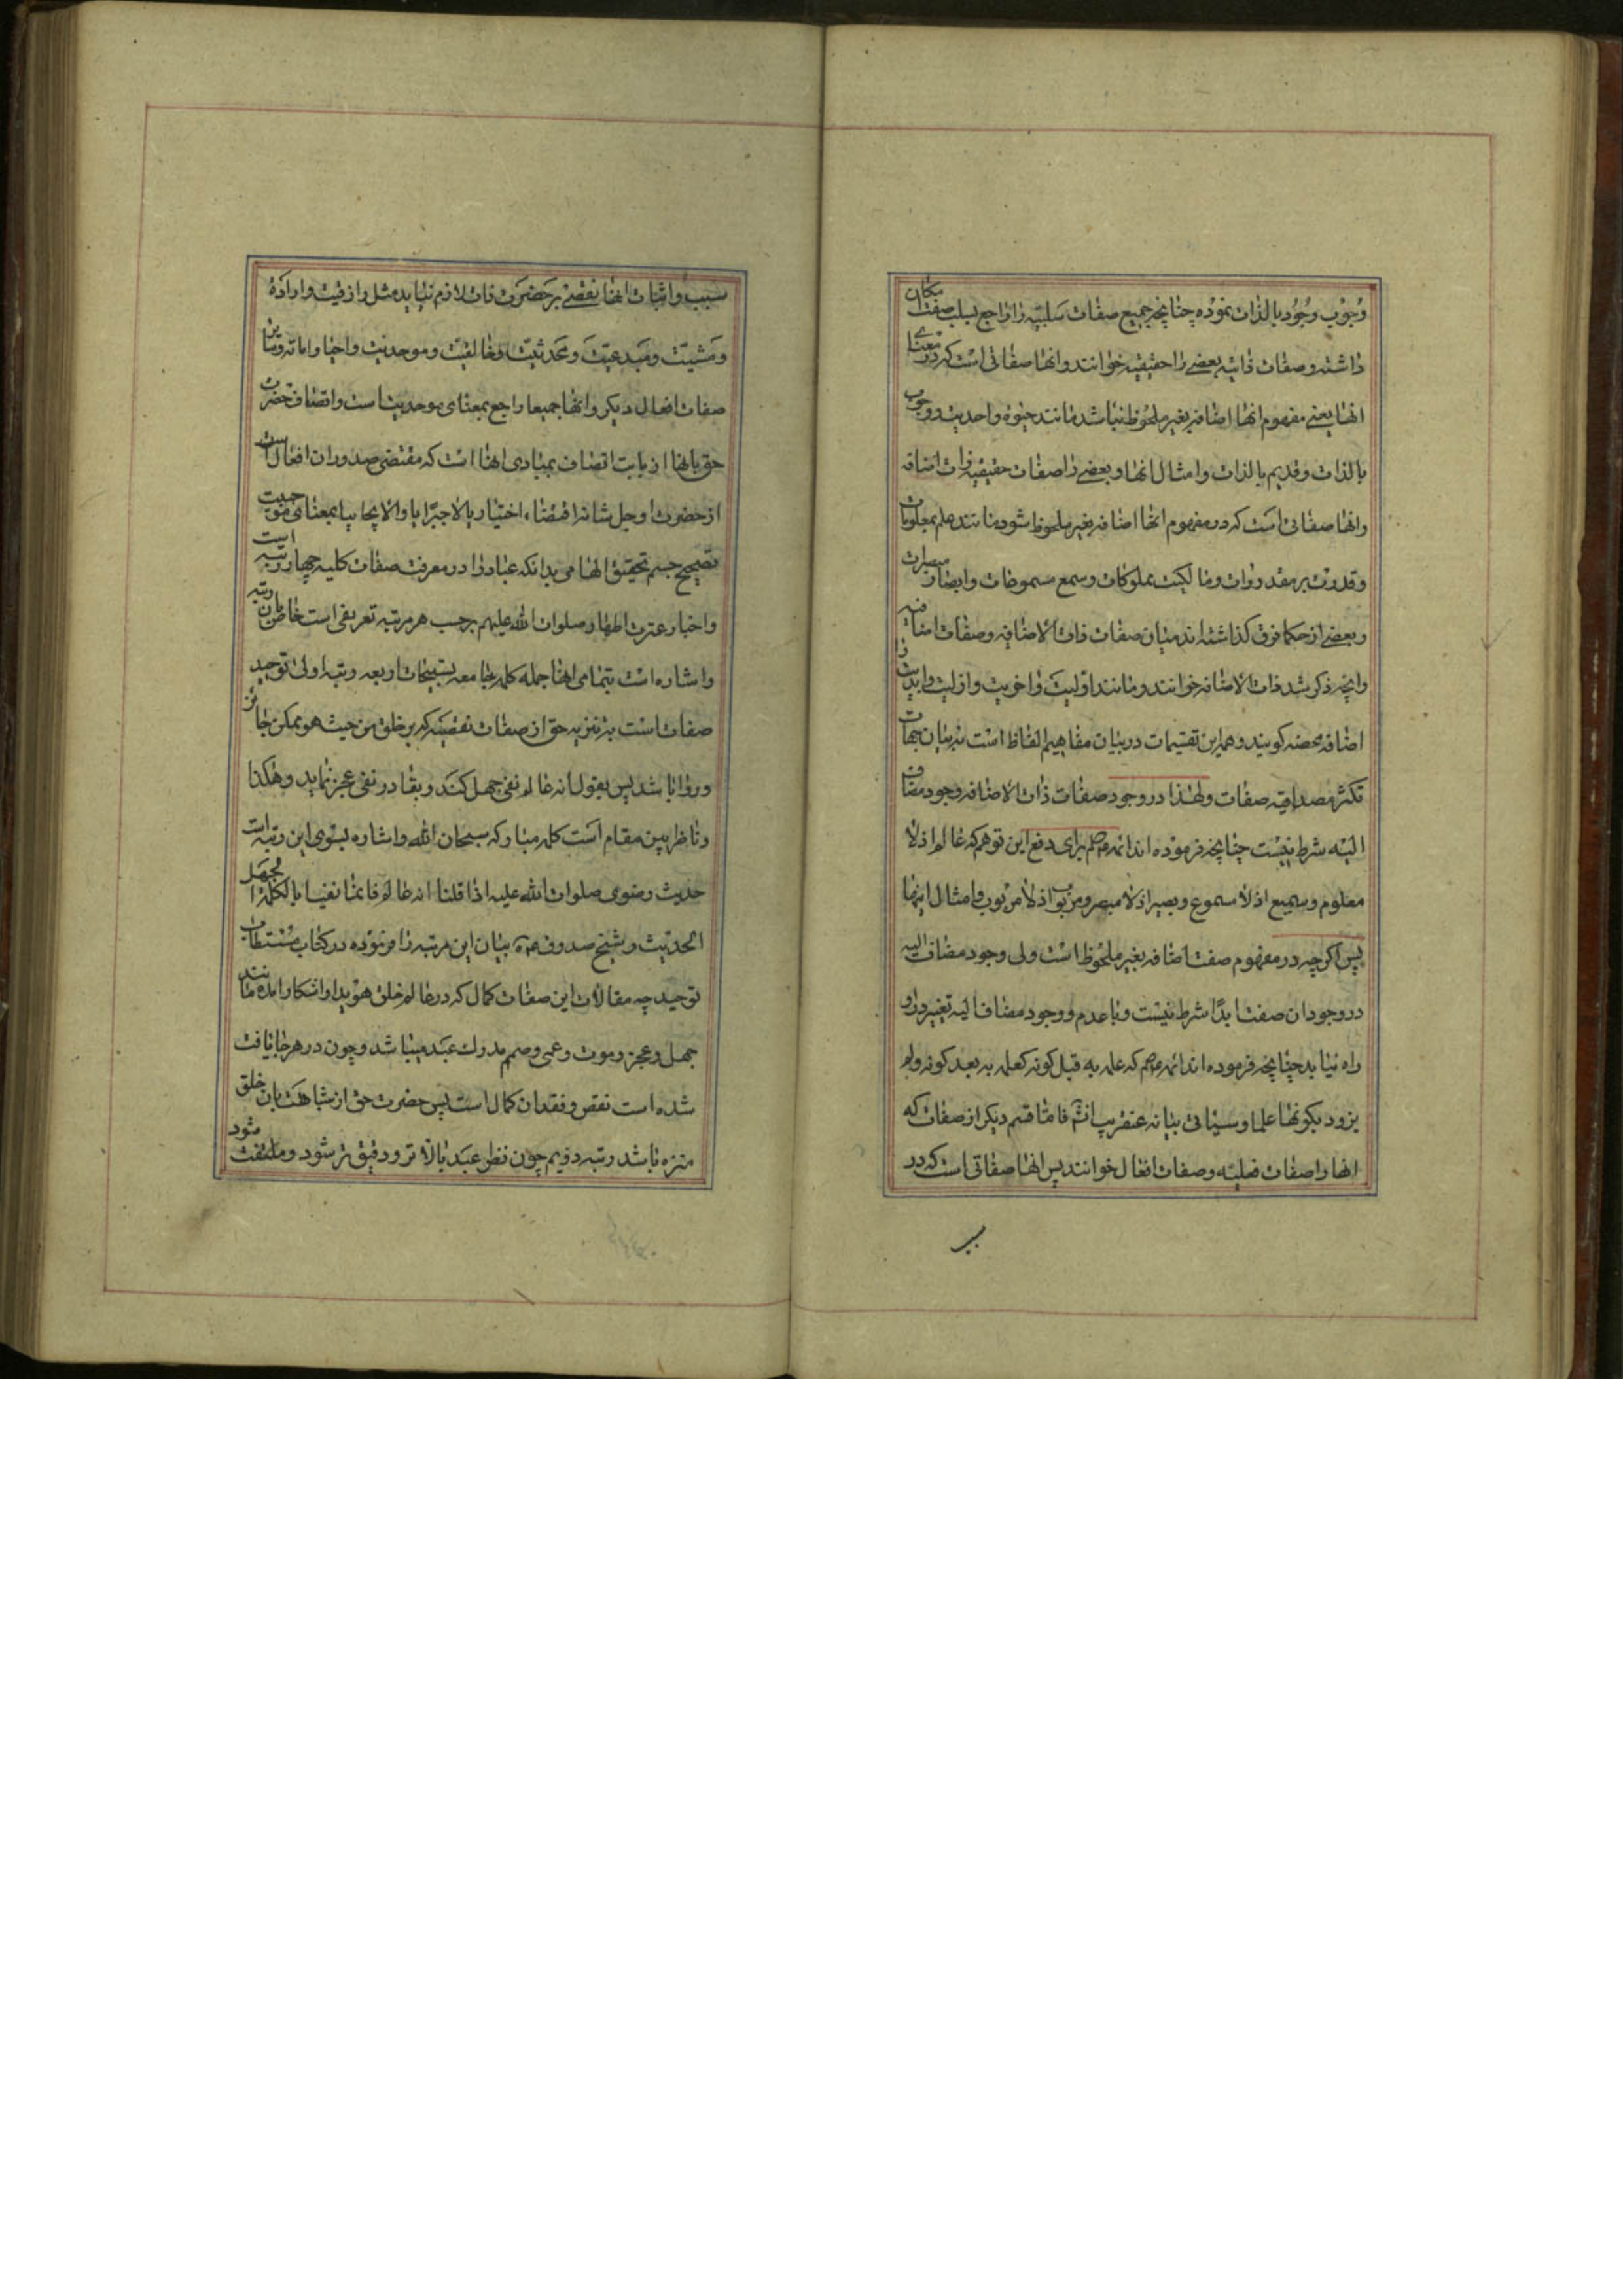 وجوب وجود بالذات نموده چنانچه جمیع صفات سلبیه را راجع بسلب صفت امکان
داشته و صفات ذاتیه بعضی را حقیقیه خوانند و انها صفاتی است که در معنای
انها یعنی مفهوم انها اضافه بغیر ملحوظ نباشد مانند حیوة و احدیت و وجوب
بالذات و قدیم بالذات و امثال انها و بعضی را صفات حقیقیه ذات اضافه
و انها صفاتی است که در مفهوم انها اضافه بغیر ملحوظ شود مانند علم بمعلومات
و قدرت بر مقدورات و مالکیت بملوکات و سمع مسموعات و ابصار مبصرات
و بعضی از حکما فرق کذاشته اند میان صفات ذات الاضافه و صفات اضافیه
و انچه ذکر شد ذات الاضافه خوانند و مانند اولیت و اخریت و ازلیت و ابدیت را
اضافه محضه کویند و همه این تقسیمات در بیان مفاهیم الفاظ است نه بیان جهات
تکثر مصداقیه صفات و لهذا در وجود صفات ذات الاضافه وجود مضاف
الیه شرط نیست چنانچه فرموده اند ائمه برای دفع این توهم که عالم اذ لا
معلوم و سمیع اذ لا مسموع و بصیر اذ لا مبصر و رب اذ لا مربوب و امثال اینها
پس اکرچه در مفهوم صفت اضافه بغیر ملحوظ است ولی وجود مضاف الیه
در وجود ان صفت ابدًا شرط نیست و با عدم و وجود مضاف الیه تغییر در او
راه نیابد چنانچه فرموده اند ائمه که علمه به قبل کونه کعلمه به بعد کونه و لم
یزدد بکونها علما و سیاتی بیانه عنقریب انشٓ فامّا قسم دیکر از صفات که
انها را صفات فعلیه و صفات افعال خوانند پس انها صفاتی است که در
سبب و اثبات انها نقصی بر حضرت ذات لازم نیاید مثل رازقیت و ارادهٔ
و مشیّت و مبدعیّت و محدثیّت و خالقیّت و موجدیت و احیا و اماته و مانند این
صفات افعال دیکر و انها جمیعا راجع بمعنای موجدیت است و اتصاف حضرت
حق بانها از بابت اتصاف بمبادی انها است که مقتضی صدور ان افعال است
از حضرت او جل شانه اقتضاء اختیاریا لا جبرًایا و لا ایجابیا بمعنای موجبیت
تصحیح تحقیق الهامی بدانکه عباد را در معرفت صفات کلیه چهار رتبه است
و اخبار عترت اطهار صلوات الله علیهم برحسب هر مرتبه تعریفی است خاص بان رتبه
و اشاره است بتمامی انها جمله کلمه جامعه تسبیحات اربعه رتبه اولی توحید
صفات است به تنزیه حق از صفات نقصیه که بر خلق من حیث هو ممکن جائز
و روا باشد پس بقول انه عالم نفی جهل کند و بقادر نفی عجز نماید و هکذا
و ناظر بین مقام است کلمه مبارکه سبحان الله و اشاره بسوی این رتبه است
حدیث رضوی صلوات الله علیه اذا قلنا انه عالم فانما نفینا بالکلمة الجهل
الحدیث و شیخ صدوق بیان این مرتبه را فرموده در کتاب مستطاب
توحید چه مقالات این صفات کمال که در عالم خلق هویدا و اشکارا امده مانند
جهل و عجز و موت و عمی و صمم مدرك عبد میباشد و چون در هر جا یافت
شده است نقص و فقدان کمال است پس حضرت حق از شباهت بان خلق
منزه باشد رتبه دویم چون نظر عبد بالاتر و دقیق تر شود و ملتفت شود